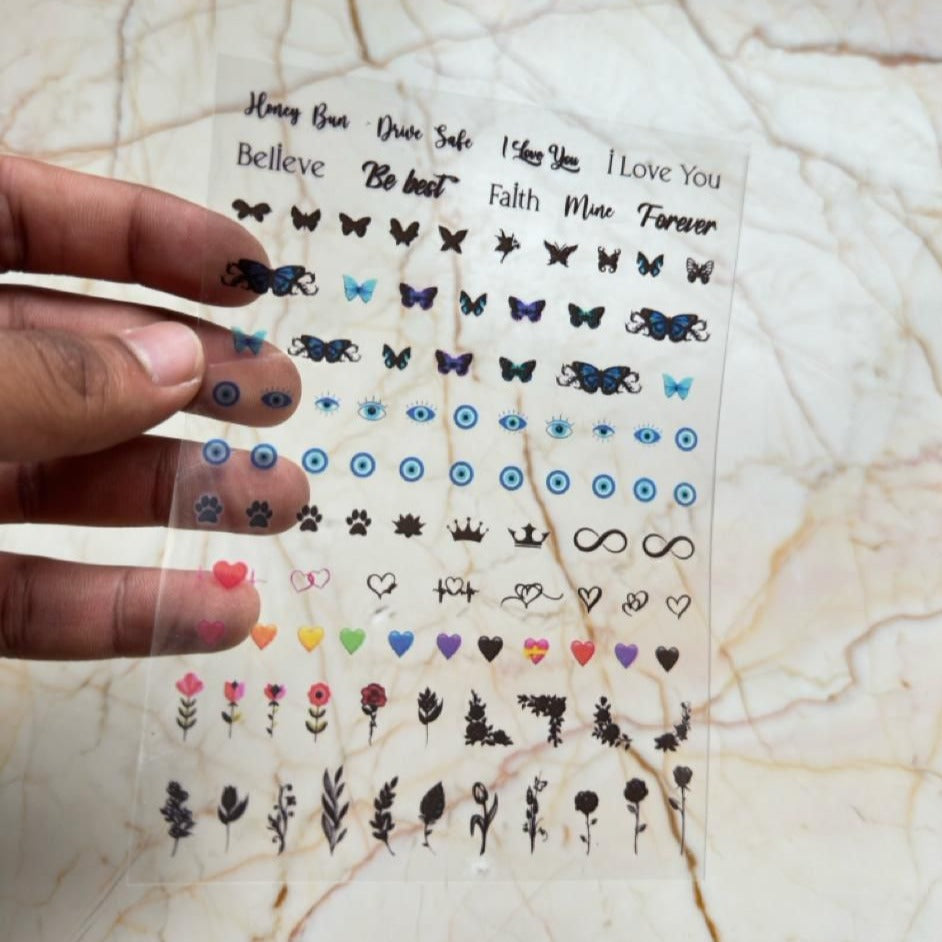 Honey Bun Drive Safe I Love You I Love You
Believe Be best Faith Mine Forever